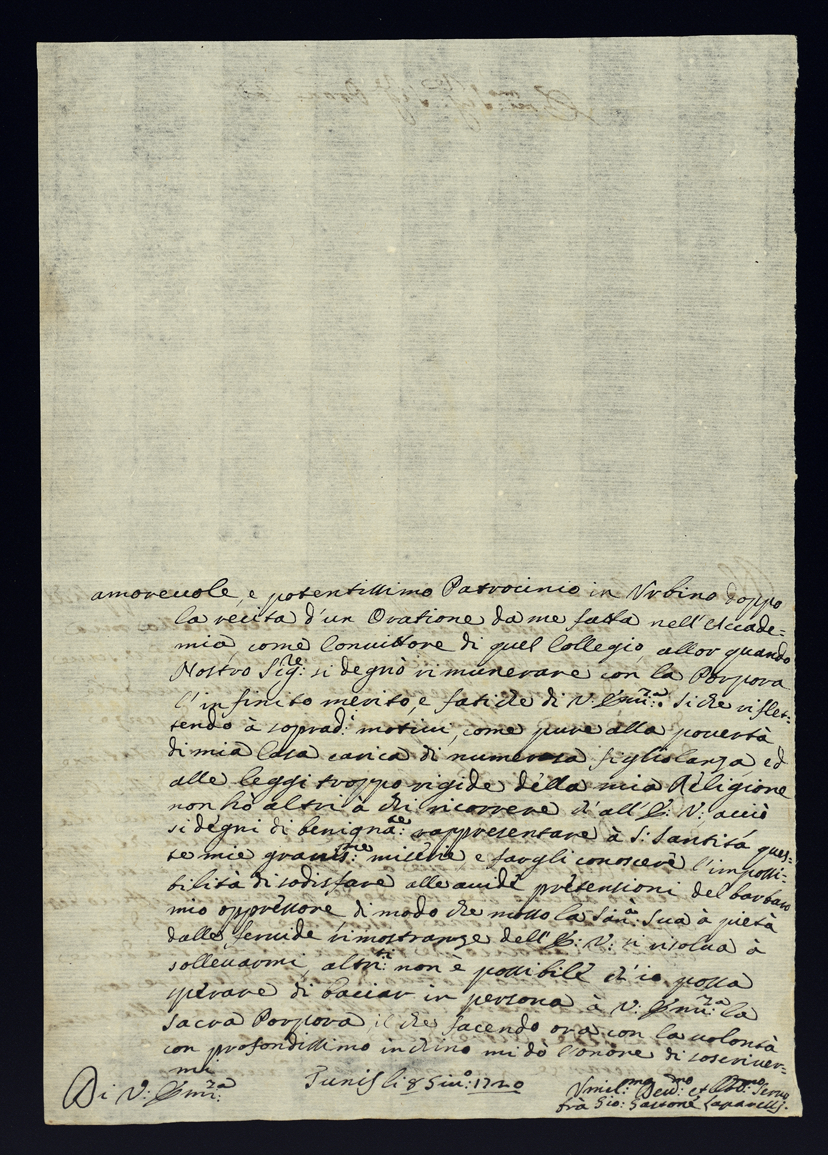 amoreuole, e potentissimo Patrocinio in Vrbino doppo
la recita d'un Oratione da me fatta nell'Accade=
mia, come Conuittore di quel Collegio, allor quando
Nostro Sig:re si degnò rimunerare con la Porpora
l'infinito merito, e fatiche di V: Em:za: Si che riflet=
tendo à soprad:i motiui, come pure alla pouertà
di mia Casa carica di numerosa figliolanza, ed
alle leggi troppo rigide della mia Religione
non hò altri à chi ricorrere ch'all'E: V: acciò
si degni di benignam:te rappresentare à S: Santità ques=
te mie grauis:me miserie e fargli conoscere l'impossi=
bilità di sodisfare alle auide pretensioni del barbaro
mio oppressore di modo che mossa la San:à Sua à pietà
dalle feruide rimostranze dell'E: V: si risolua à
solleuarmi, altri:ti non è possibile ch'io possa
sperare di baciar in persona à V: Em:za la
Sacra Porpora il che facendo ora con la uolontà
con profondissimo inchino mi dò l'onore di soscriuer=
mi
Di V: Em:za
Tunis li 8 Giu:o: 1720
Vmil:mo Deu:mo et Obb:mo Seruo
frà Gio: Gastone Laparelli.